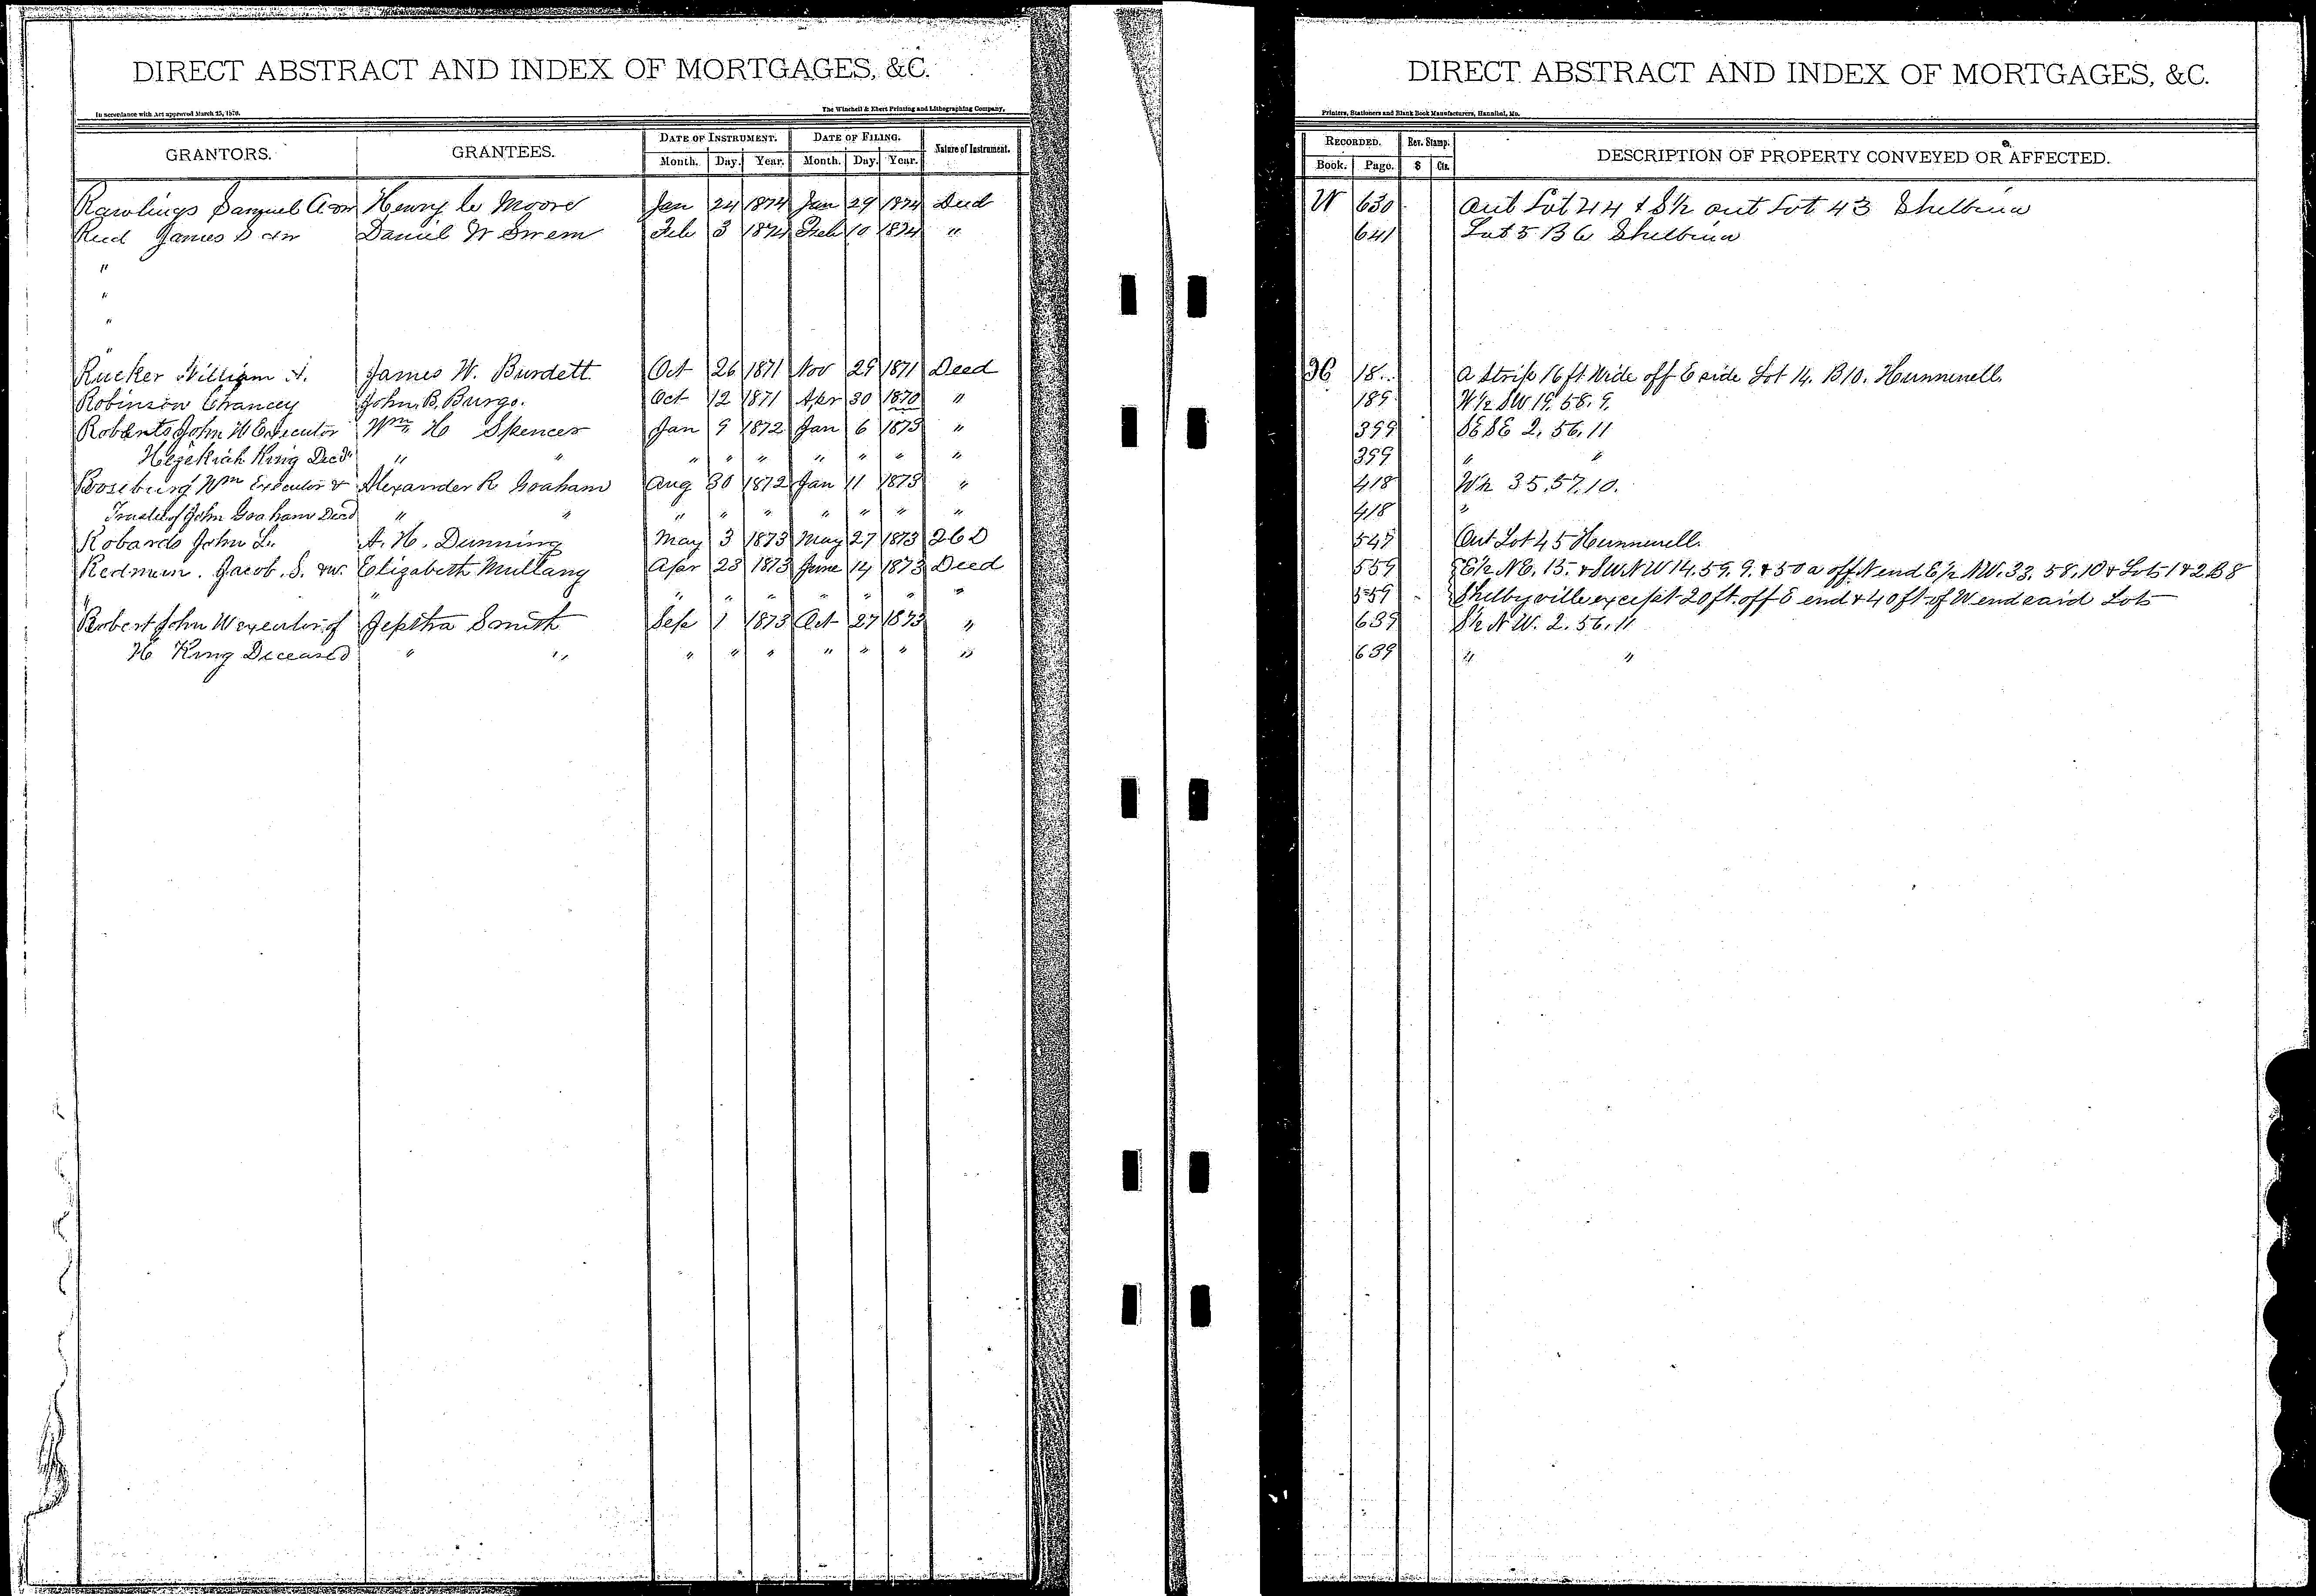 DIRECT ABSTRACT AND INDEX OF MORTGAGES, &C.
In accordance with Act approved March 25, 1870.
The Winchell & Ebert Printing and Lithographing Company,
GRANTORS. GRANTEES. DATE OF INSTRUMENT. DATE OF FILING. Nature of Instrument.
Month. Day. Year. Month. Day. Year.
Rawlings Samuel A Henry C Moore Jan 24 1874 Jan 29 1874 Deed
Reed James S &w Daniel W Swem Feb 3 1874 Feb 10 1874 "
"
"
"
"
Rucker William A. James W. Burdett. Oct 26 1871 Nov 29 1871 Deed
Robinson Chancey John. B. Burgo. Oct 12 1871 Apr 30 1870 "
Roberts John W Executor Wm H Spencer Jan 9 1872 Jan 6 1873 "
Hezekiah King Decd " " " " " " " " "
Roseburg Wm Executor & Alexander R Graham Aug 30 1872 Jan 11 1873 "
Trustee of John Graham Decd " " " " " " " " "
Robards John L. A. H. Dunning May 3 1873 May 27 1873 2 6 D
Redmun. Jacob. S. &w. Elizabeth Mullany Apr 23 1873 June 14 1873 Deed
" " " " " " " " "
Robert John W executor of Jeptha Smith Sep 1 1873 Oct 27 1873 "
H King Deceased " " " " " " " " "
DIRECT ABSTRACT AND INDEX OF MORTGAGES, &C.
Printers, Stationers and Blank Book Manufacturers, Hannibal, Mo.
RECORDED. Rev. Stamp. DESCRIPTION OF PROPERTY CONVEYED OR AFFECTED.
Book. Page. $ Cts.
W 630 Out Lot 44 & S½ out Lot 43 Shelbina
641 Lot 5 B 6 Shelbina
36 18 A Strip 16 ft Wide off E side Lot 14. B 10. Hunnewell.
189 W½ SW 19. 58. 9.
399 SE SE 2, 56, 11
399 " "
418 W½ 35, 57, 10.
418 "
545 Out Lot 45 Hunnewell.
559 E½ NE. 15. & SW NW 14, 59, 9. & 50 a off N end E½ NW. 33. 58, 10 & Lots 1 & 2 B 8
559 Shelbyville except 20 ft. off E end & 40 ft of W end said Lots
639 S½ N W. 2. 56. 11
639 " "